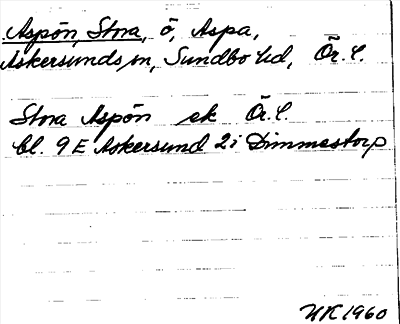 Aspön, Stora, ö, Aspa,
Askersunds sn, Sundbo hd, Ör. l.
Stora Aspön ek Ör. l.
bl. 9 E Askersund 2 i Dimmestorp
NK 1960